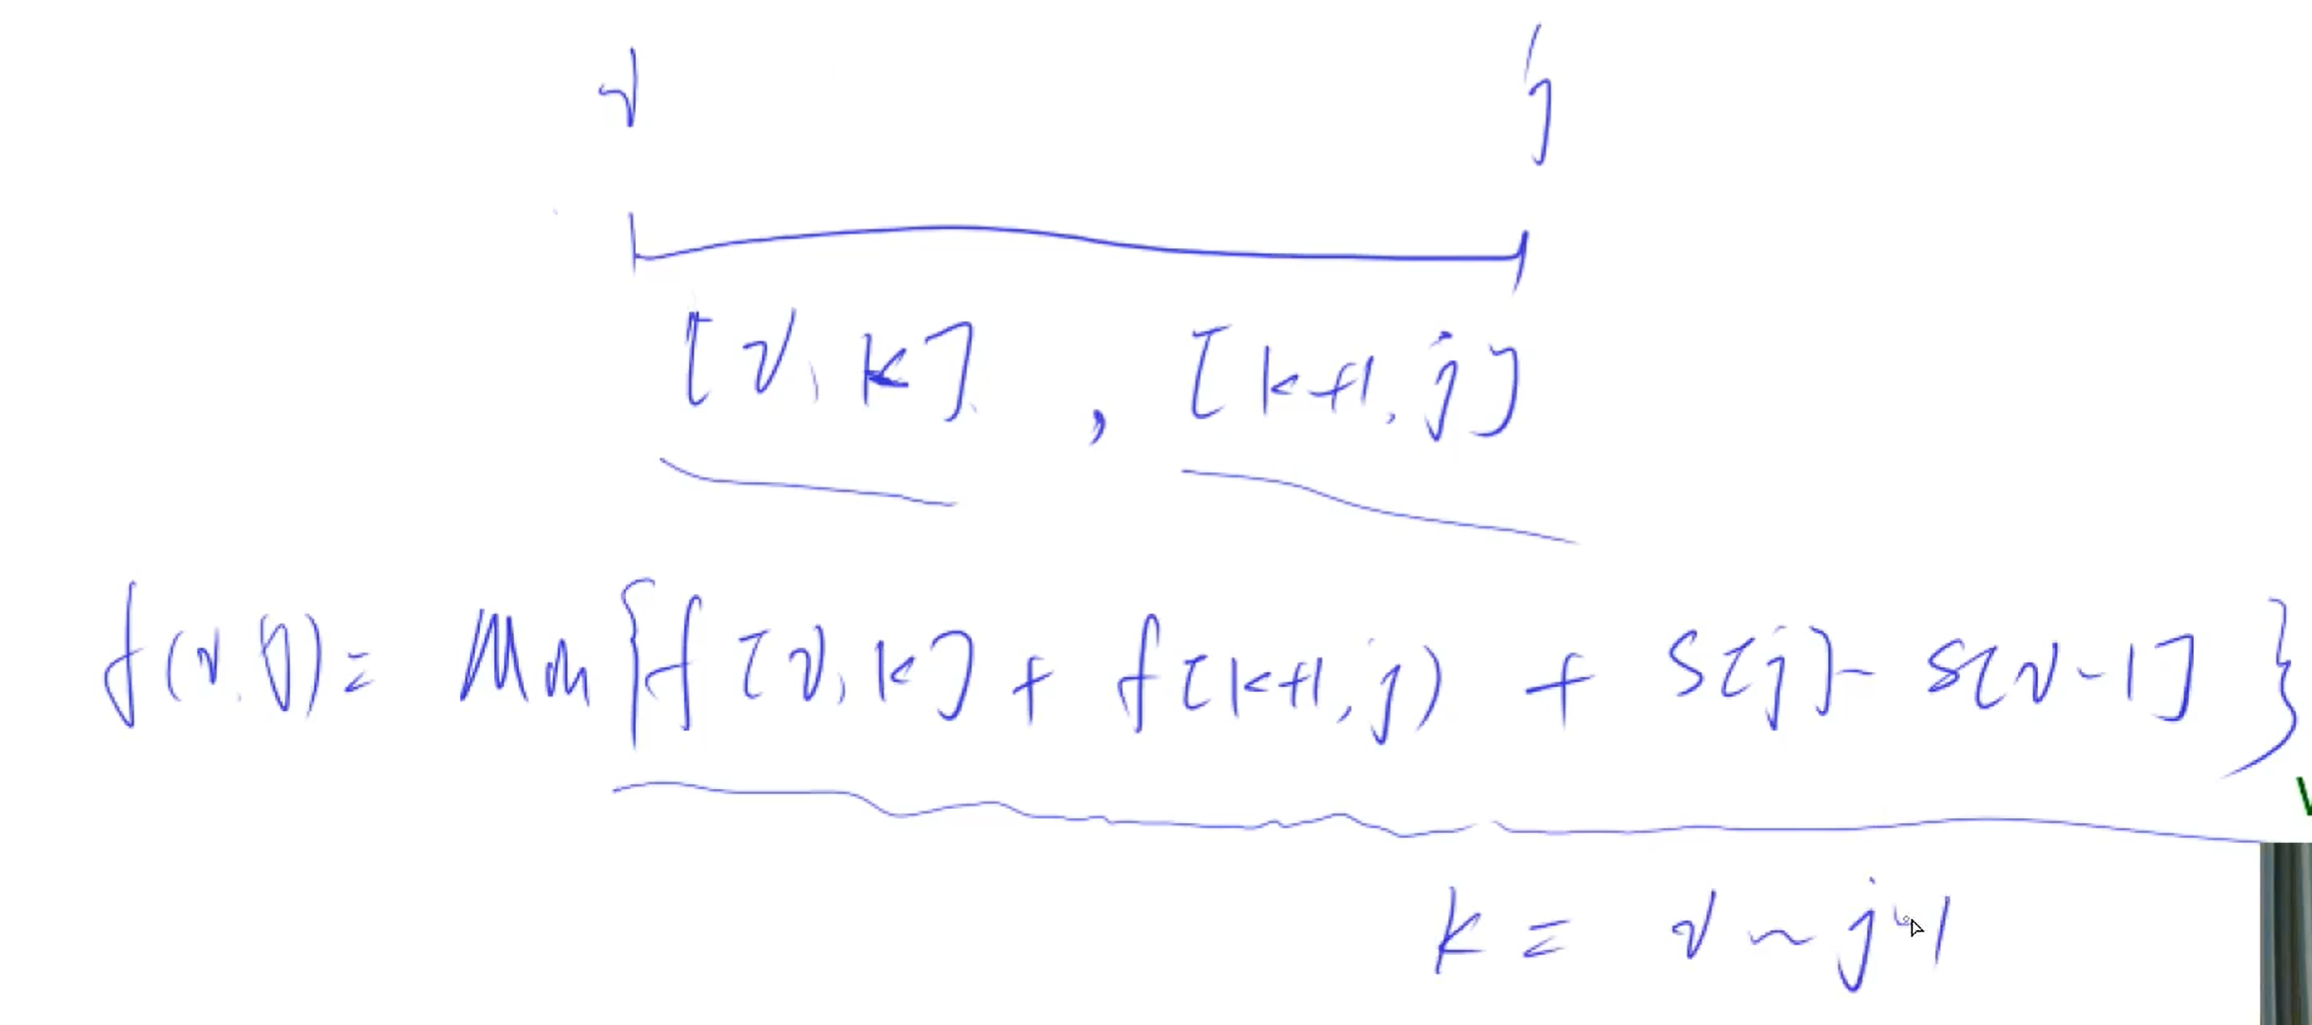 i j
[i, k] , [k+1, j]
f(i, j) = Min {f[i, k] + f[k+1, j) + S[j] - S[i-1] }
k = i ~ j-1